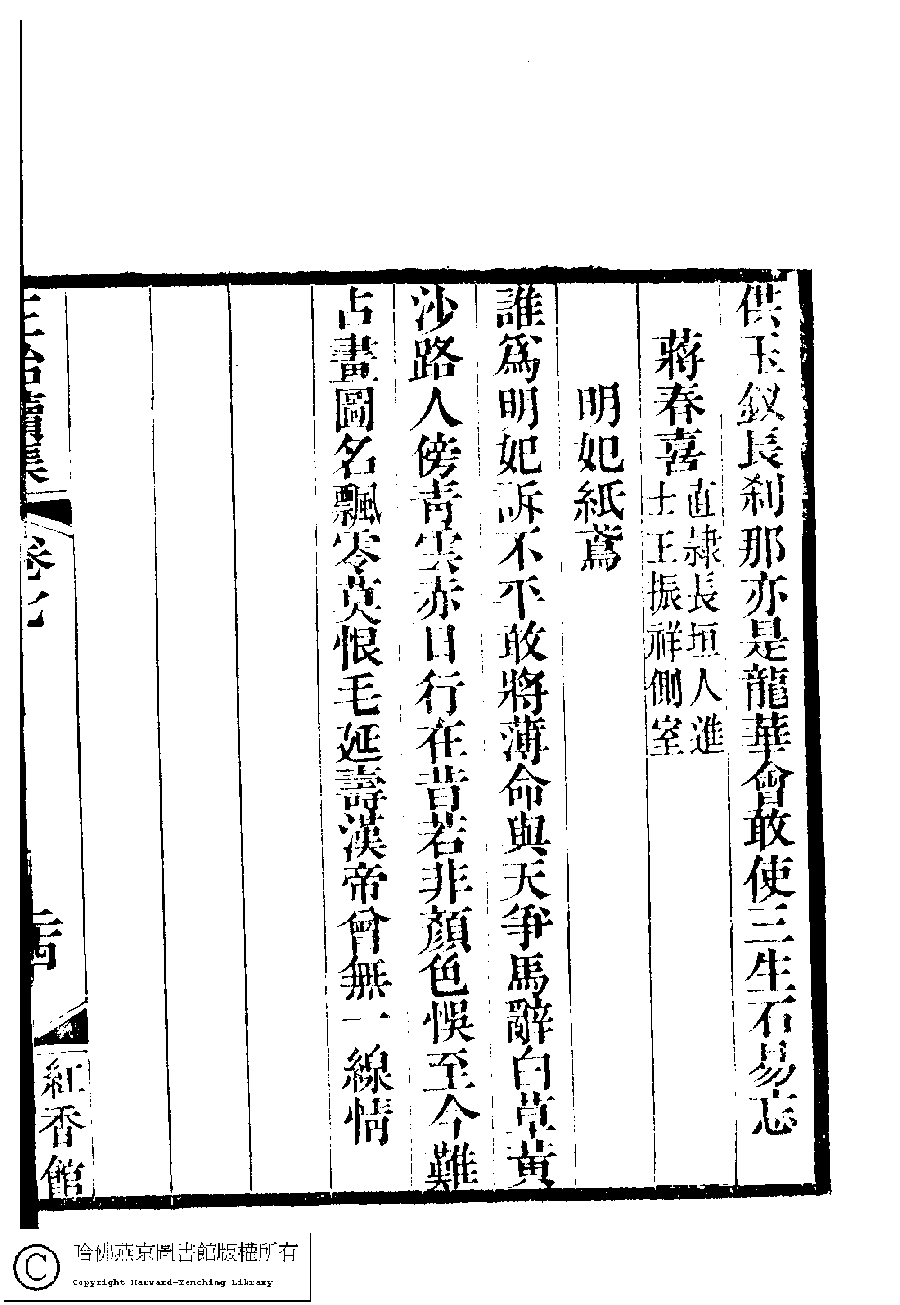 供玉釵長刹那亦是龍華會敢使三生石易志
蔣春喜
直隷長垣人進
士王振祥側室
明妃紙鳶
誰爲明妃訴不平敢將薄命與天爭馬辭白草黃
沙路人傍靑雲赤日行在昔若非顏色悞至今難
占畫圖名飄零莫恨毛延壽漢帝曾無一線情
正始續集
卷七
紅香館
哈佛燕京圖書館版權所有
Copyright Harvard-Yenching Library